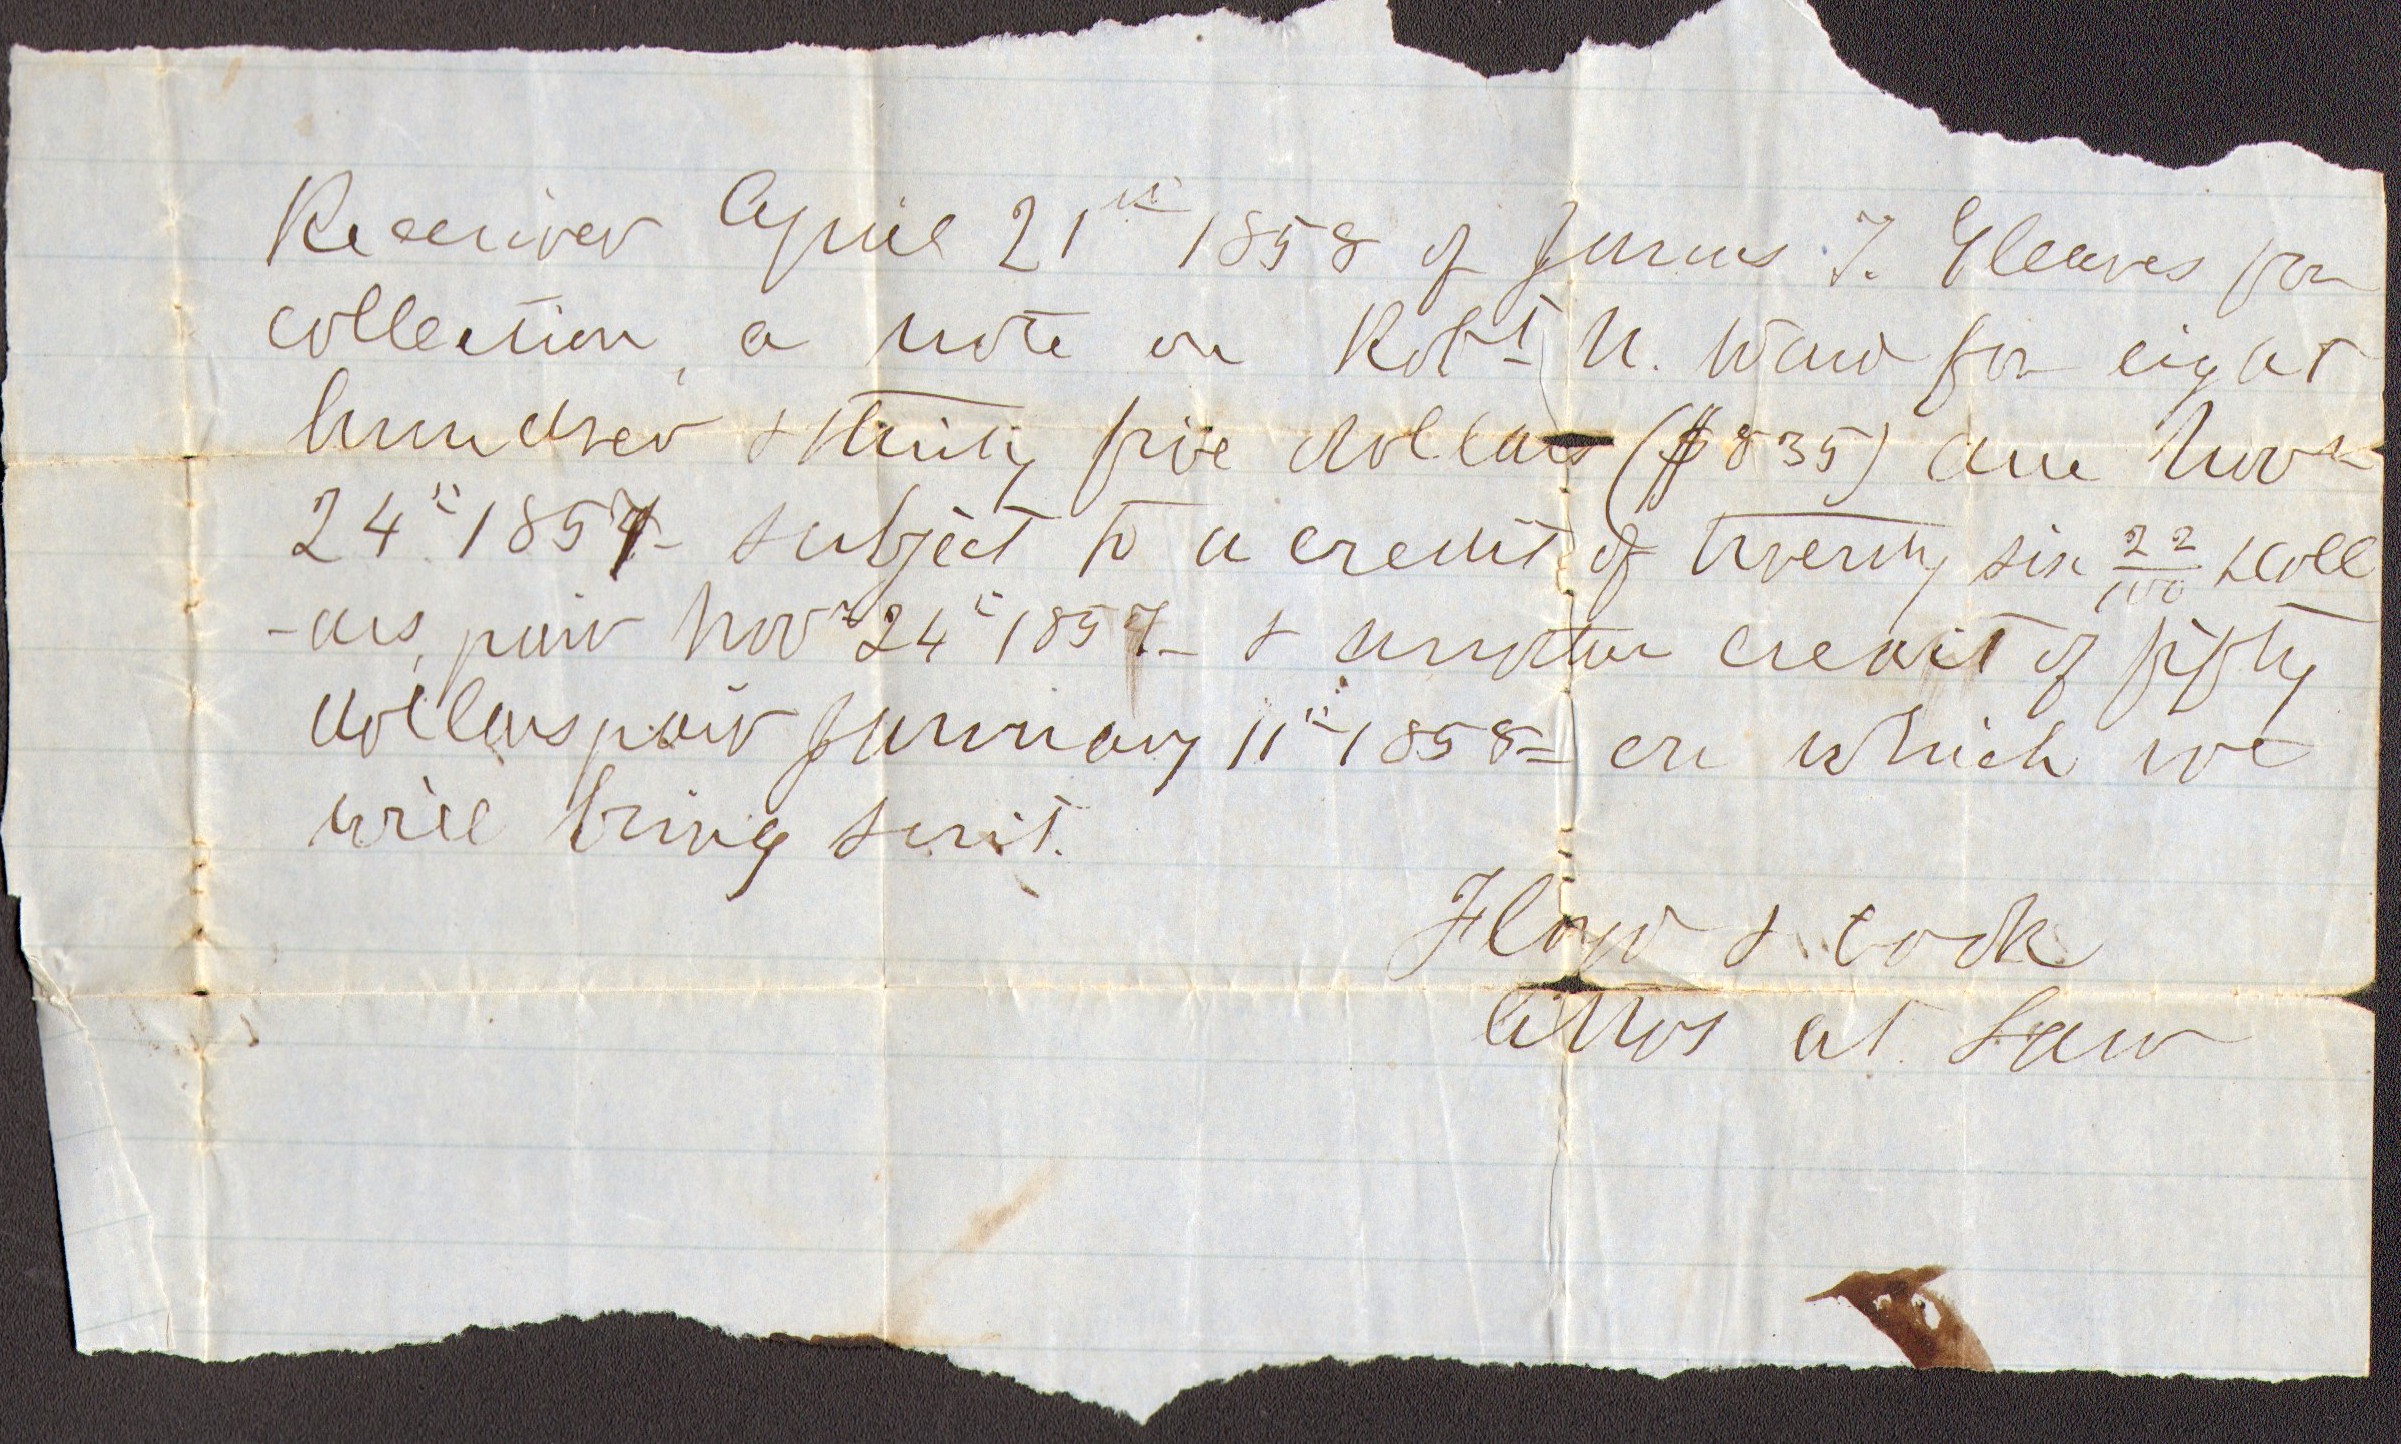 Received April 21st 1858 of James T. Gleaves for
collection, a note on Robt N. Ward for eight
hundred & thirty five dollars ($835) due Novr
24th 1857 - subject to a credit of twenty six 22/100 doll
-ars, paid Novr 24th 1857 - & another credit of fifty
dollars paid January 11th 1858 - on which we
will bring suit.
Floyd & Cook
Attys at Law